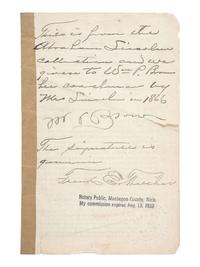 This is from the
Abraham Lincoln
collection and was
given to Wm P. Brown
her coachman by
Mrs Lincoln in 1866
W P Brown
The signature is
genuine
Frank
Notary Public, Muskegon County, Mich.
My commission expires Aug. 13, 1932